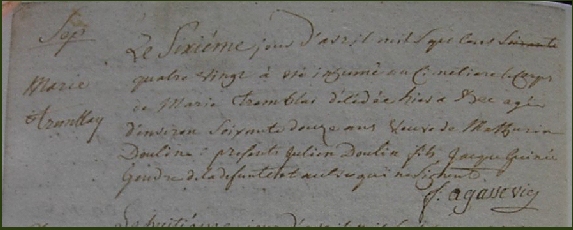 Sep.
Marie
Tremblay
Le Sixiéme jour d'avril mil Sept Cens Soixante
quatre vingt à été inhumé au Cimetiere le Corps
de Marie Tremblai décédée hier a agée
d'environ Soixante douze ans Veuve de Mathurin
Doulin : presents Julien Doulin fils, Jacque Guinée
Gendre de la defunte et autres qui ne Signent.
f. agasse vic
Le huitiéme jour d'avril mil Sept